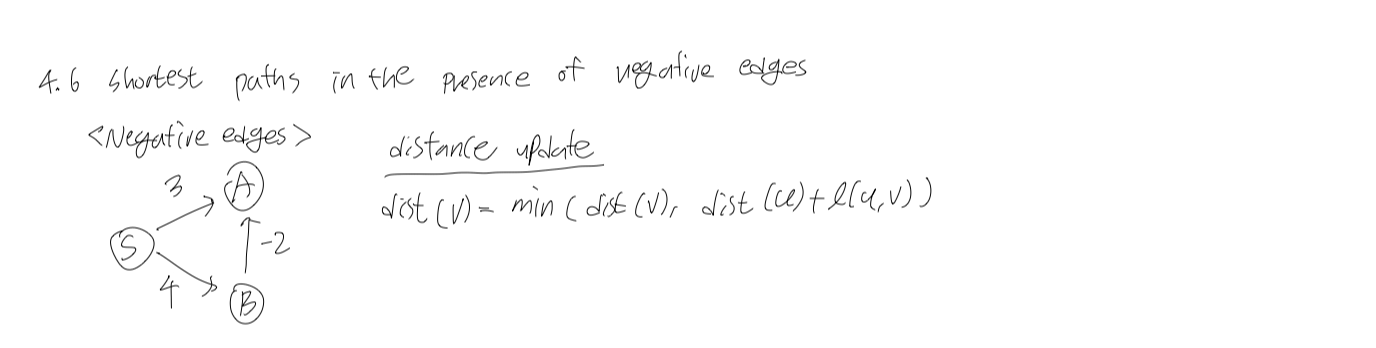 4.6 shortest paths in the presence of negative edges
<Negative edges>
distance update
dist (v) = min ( dist (v), dist (u) + l(u,v) )
3
A
S
-2
4
B